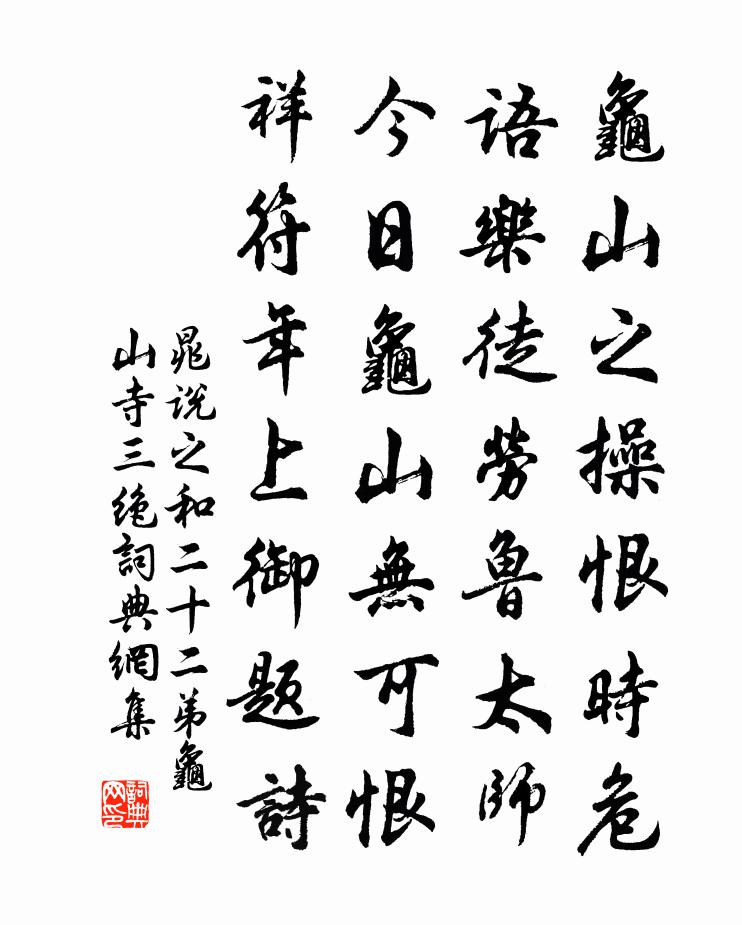 龜山之操恨時危
語樂徒勞魯太師
今日龜山無可恨
祥符年上御題詩
晁说之和二十二弟龜
山寺三绝詞典網集
詞典
网印